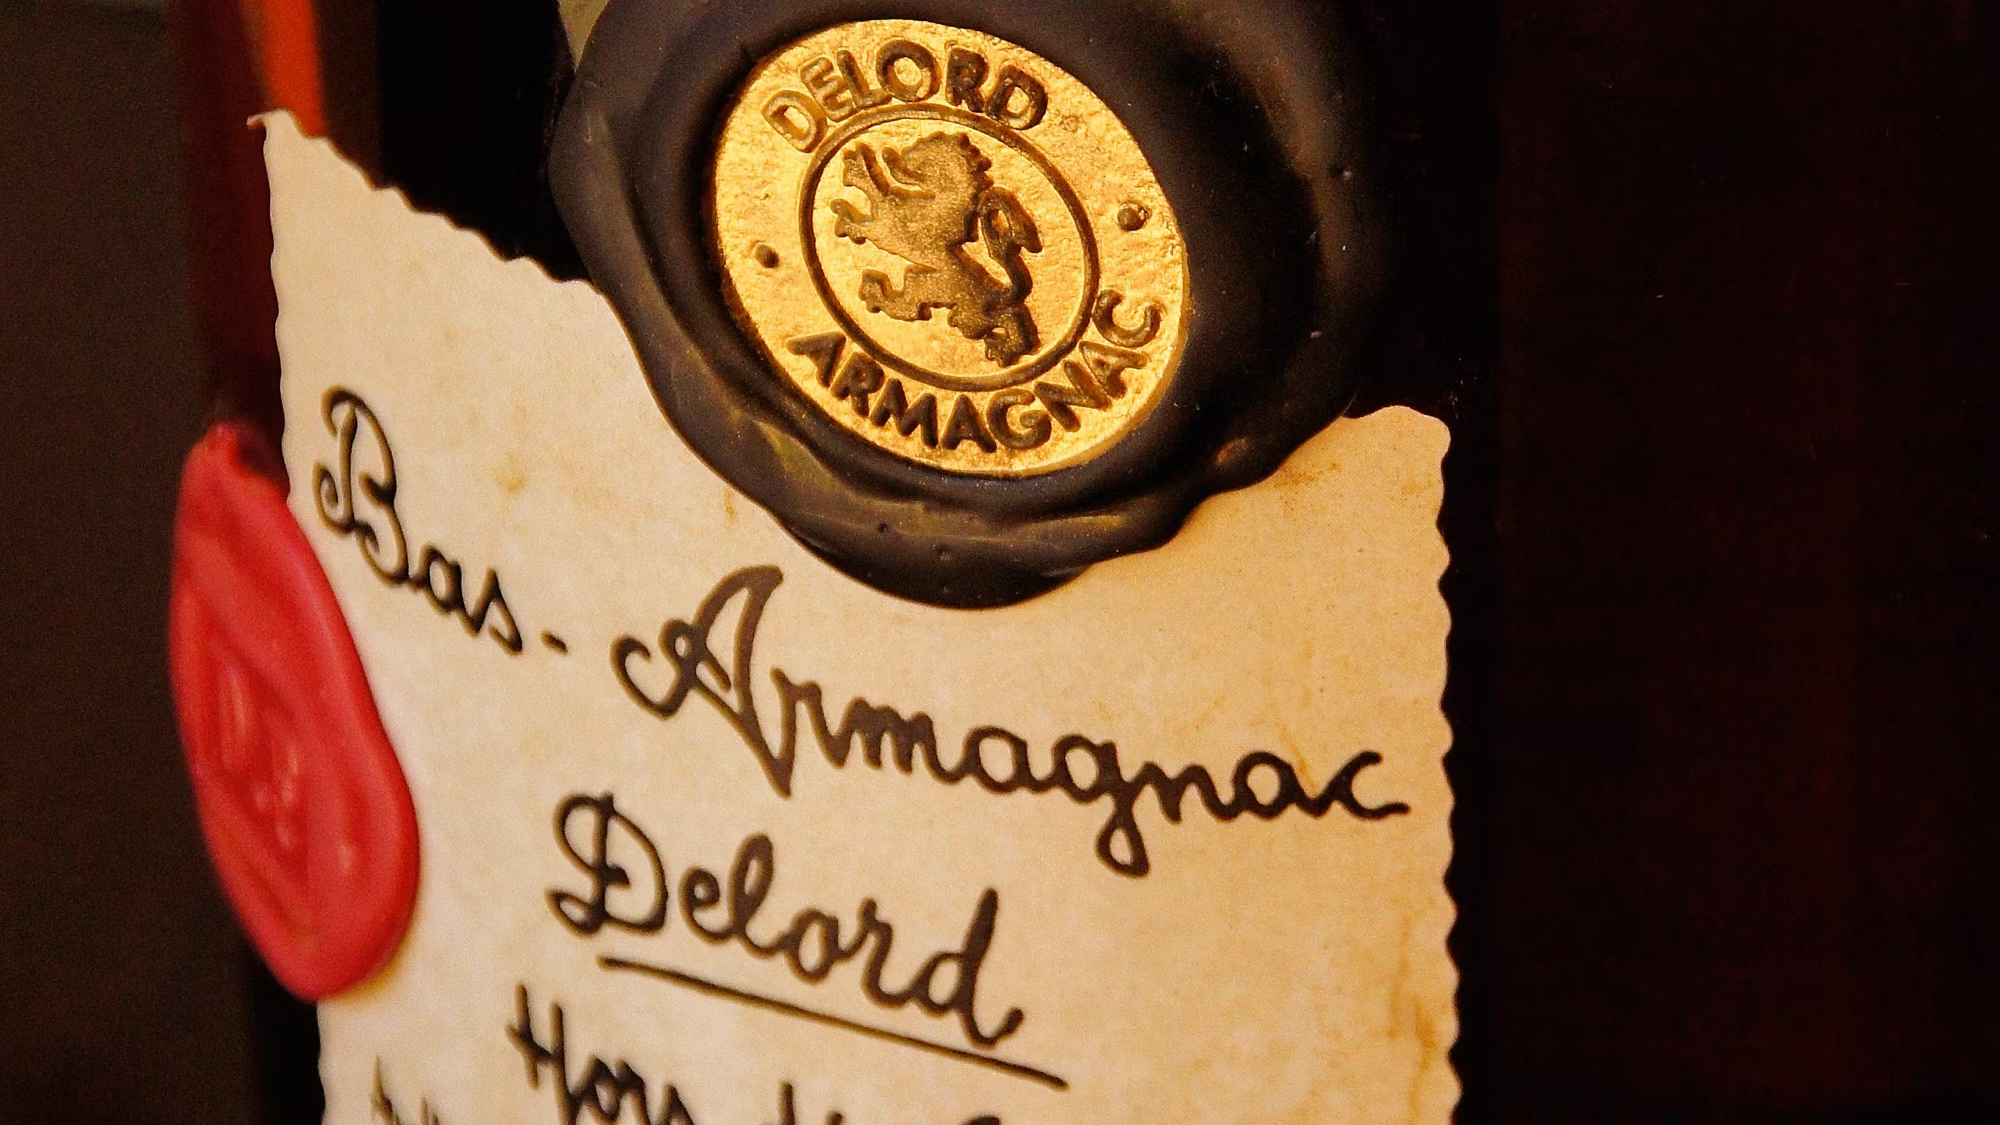 DELORD
ARMAGNAC
Bas-Armagnac
Delord
Hors